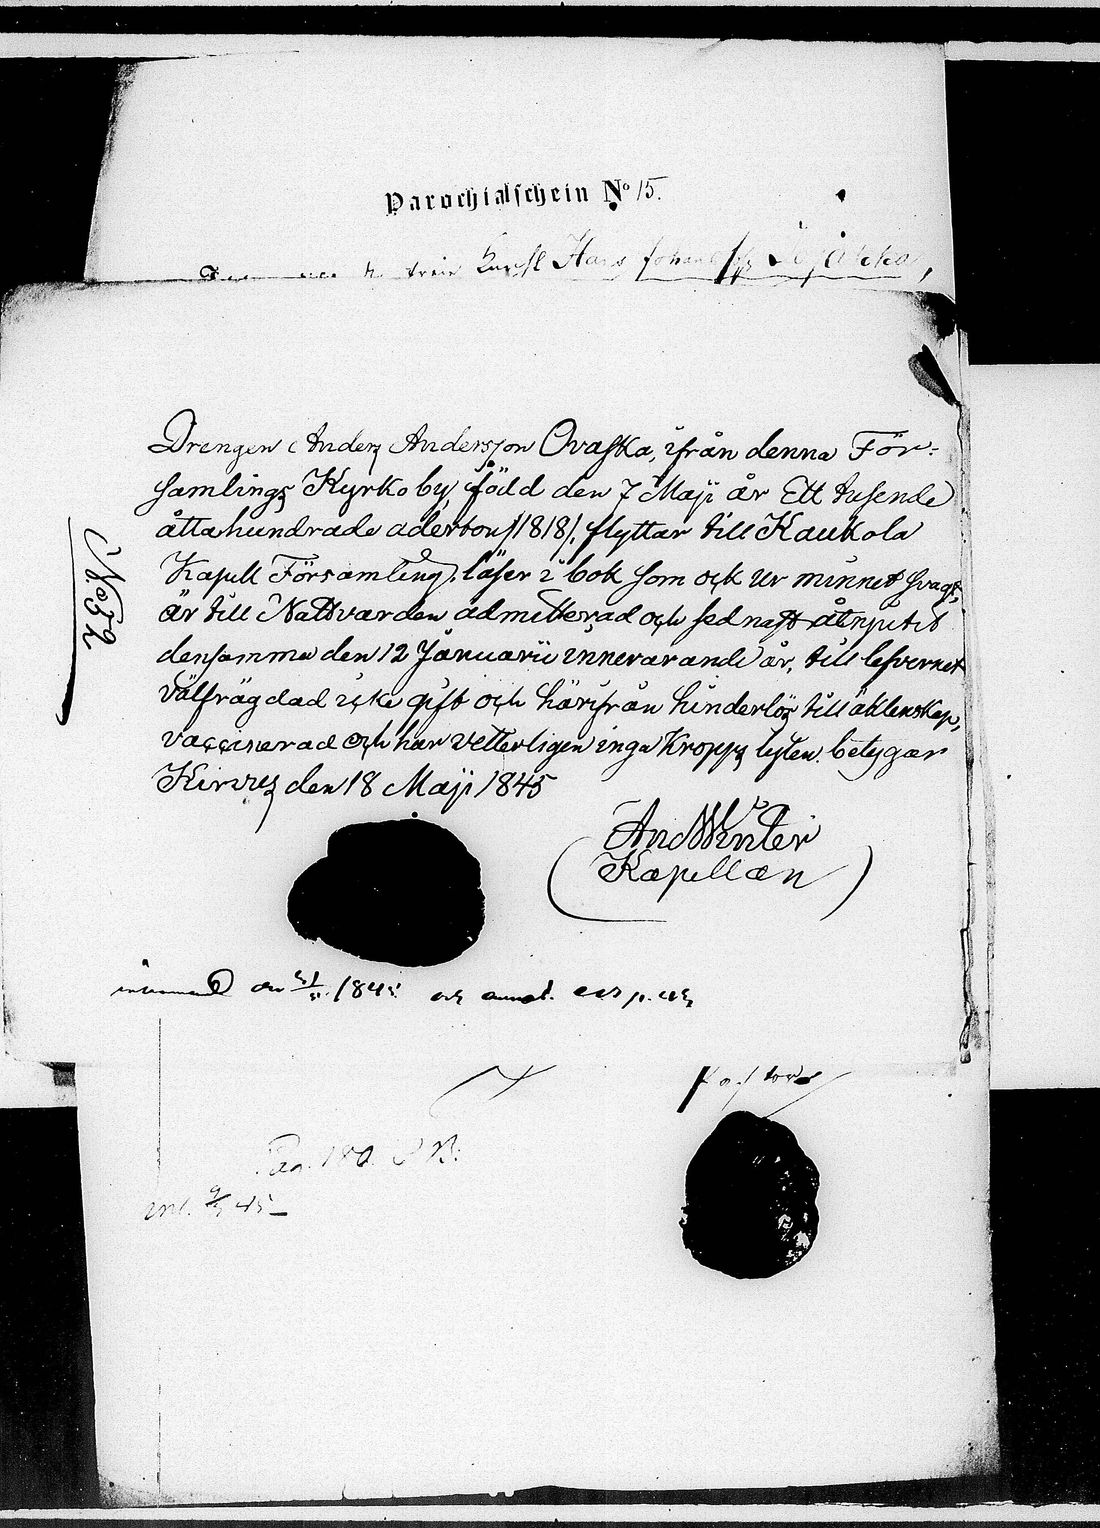 Parochialschein No 15.
Hans Johan
Drengen Anders Andersson Ovaska, ifrån denna För-
samlings Kyrkoby, född den 7 Maji år Ett tusende
åttahundrade aderton /1818/, flyttar till Kaukola
Kapell Församling, läser i bok som ock ur minnet svagt,
är till Nattvarden admitterad och sednast åtnjutit
densamma den 12 Januarii innevarande år, till lefvernet
välfrägdad icke gift och härifrån hinderlös till äktenskap,
vaccinerad och har vetterligen inga Kropps lyten. betygar
Kirvus den 18 Maji 1845
And Winter
Kapellan
No 52
1845
Pastor
Pag. 180
int. 45